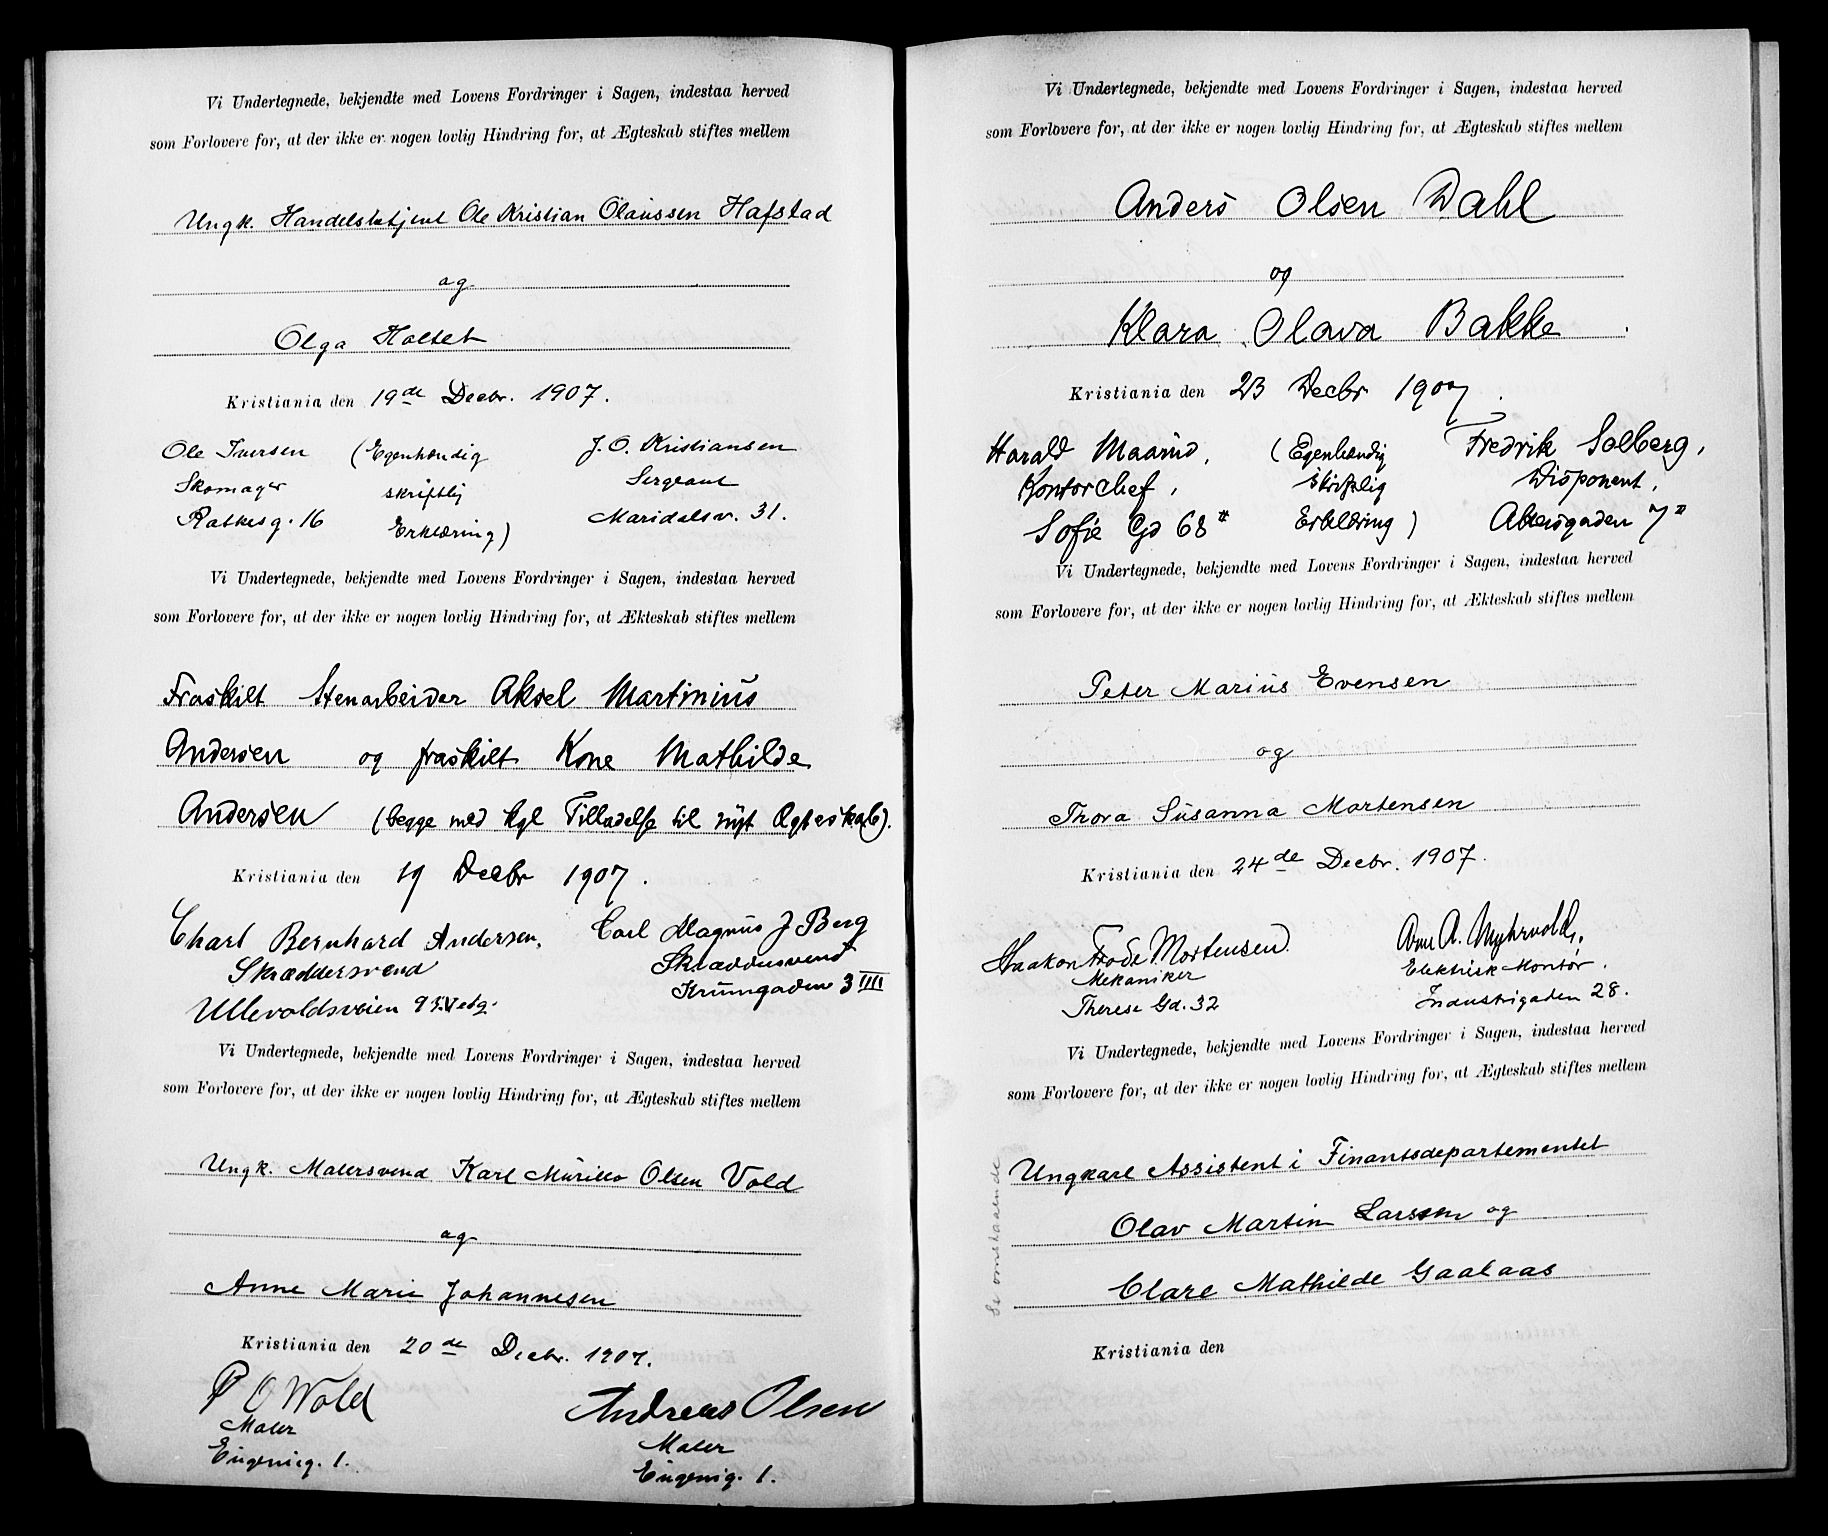 Vi Undertegnede, bekjendte med Lovens Fordringer i Sagen, indestaa herved
som Forlovere for, at der ikke er nogen lovlig Hindring for, at Ægteskab stiftes mellem
Ungk. Handelsbetjent Ole Kristian Olaussen Hafstad
og
Olga Holtet
Kristiania den 19de Decbr. 1907.
Ole Iversen (Egenhændig J. O. Kristiansen
Skomager skriftlig Sergeant
Ratkesg. 16 Erklæring) Maridalsv. 31.
Vi Undertegnede, bekjendte med Lovens Fordringer i Sagen, indestaa herved
som Forlovere for, at der ikke er nogen lovlig Hindring for, at Ækteskab stiftes mellem
Fraskilt Stenarbeider Aksel Martinius
Andersen og fraskilt Kone Mathilde
Andersen (begge med kgl Tilladelse til nyt Ægteskab).
Kristiania den 19 Decbr 1907.
Charl Bernhard Andersen, Carl Magnus J Berg
Skræddersvend Skræddersvend
Ullevoldsveien Krumgaden 3 IIII
Vi Undertegnede, bekjendte med Lovens Fordringer i Sagen, indestaa herved
som Forlovere for, at der ikke er nogen lovlig Hindring for, at Ægteskab stiftes mellem
Ungk. Malersvend Karl Murillo Olsen Vold
og
Anne Marie Johannesen
Kristiania den 20de Decbr. 1907.
P O Wold Andreas Olsen
Maler Maler
Eugenieg. 1. Eugenig. 1.
Vi Undertegnede, bekjendte med Lovens Fordringer i Sagen, indestaa herved
som Forlovere for, at der ikke er nogen lovlig Hindring for, at Ægteskab stiftes mellem
Anders Olsen Dahl
og
Klara Olava Bakke.
Kristiania den 23 Decbr 1907.
Harald Maarud, (Egenhændig Fredrik Solberg,
Kontorchef, skriftlig Disponent,
Sofie Gd 68 II Erklæring) Akersgaden 7 II
Vi Undertegnede, bekjendte med Lovens Fordringer i Sagen, indestaa herved
som Forlovere for, at der ikke er nogen lovlig Hindring for, at Ækteskab stiftes mellem
Peter Marius Evensen
og
Thora Susanna Mortensen
Kristiania den 24de Decbr. 1907.
Haakon Frode Mortensen. A. Myhrvold,
Mekaniker Elektrisk Montør.
Therese Gd. 32 Industrigaden 28.
Vi Undertegnede, bekjendte med Lovens Fordringer i Sagen, indestaa herved
som Forlovere for, at der ikke er nogen lovlig Hindring for, at Ægteskab stiftes mellem
Ungkarl Assistent i Finantsdepartementet
Olav Martin Larssen og
Clare Mathilde Gaalaas
Kristiania den
Se omstaaende